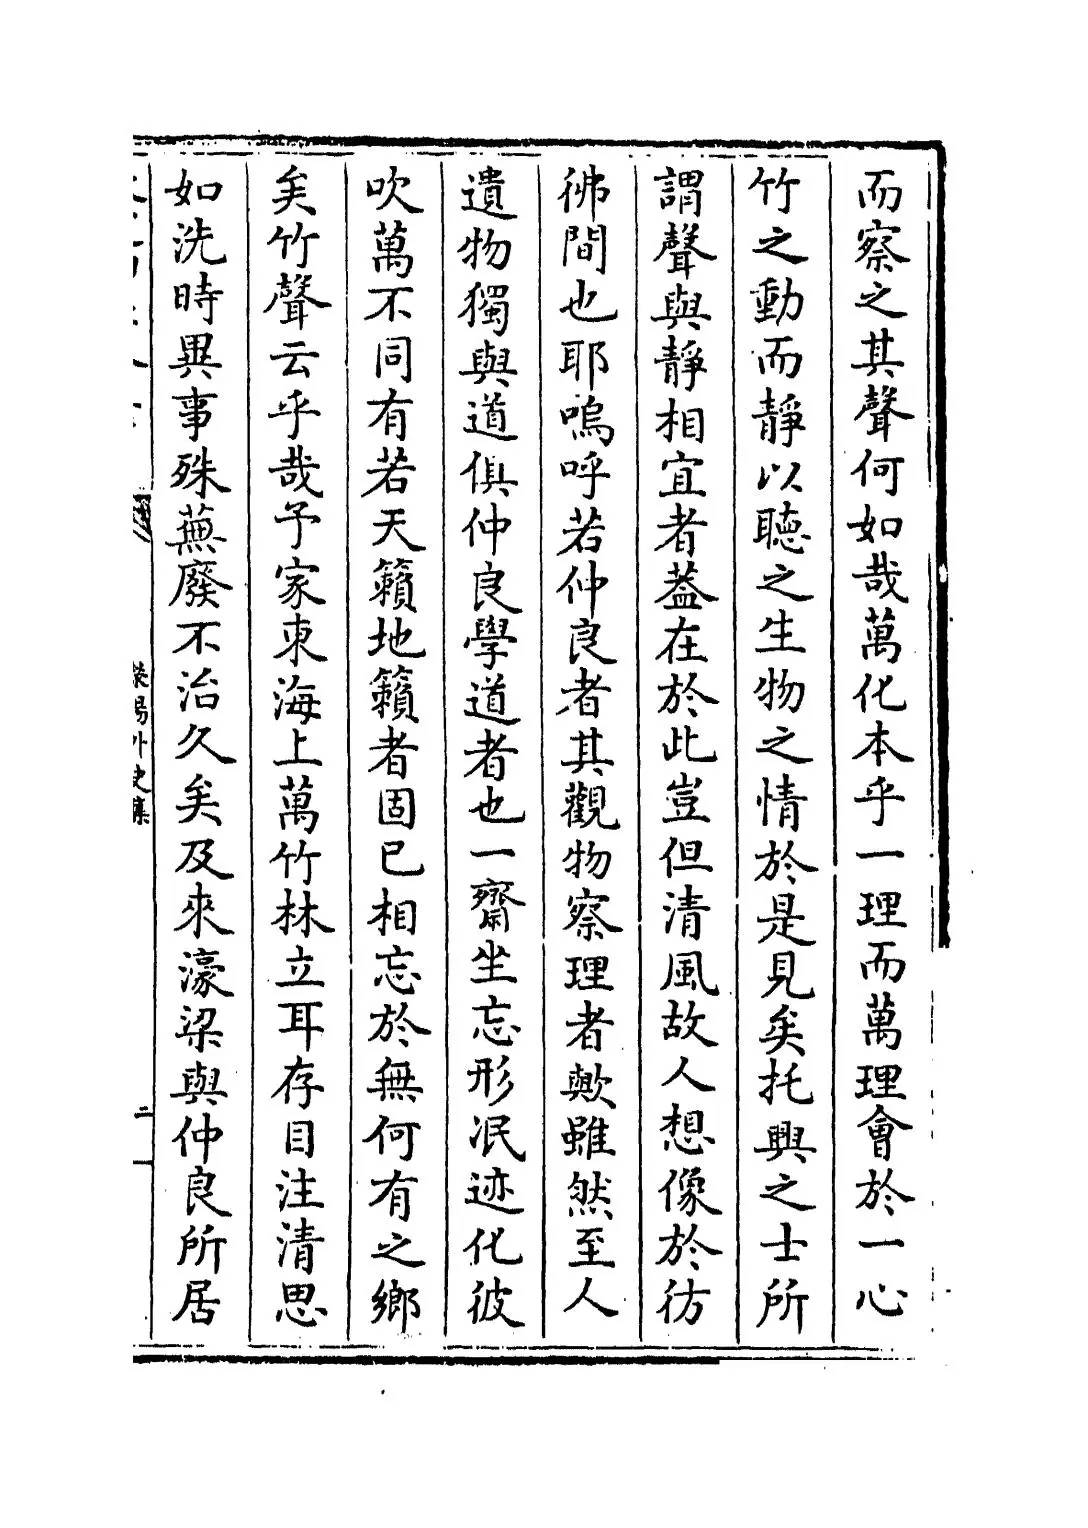 而察之其聲何如哉萬化本乎一理而萬理會於一心
竹之動而靜以聽之生物之情於是見矣托興之士所
謂聲與靜相宜者葢在於此豈但清風故人想像於彷
彿間也耶嗚呼若仲良者其觀物察理者歟雖然至人
遺物獨與道俱仲良學道者也一齋坐忘形泯迹化彼
吹萬不同有若天籟地籟者固已相忘於無何有之鄉
矣竹聲云乎哉予家東海上萬竹林立耳存目注清思
如洗時異事殊蕪廢不治久矣及來濠梁與仲良所居
滎陽外史集
二